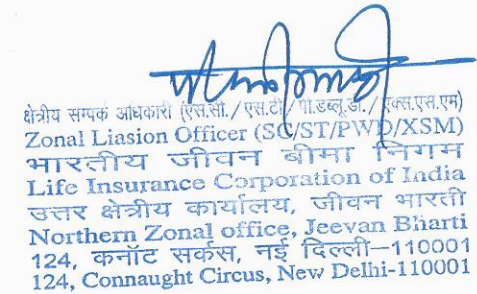 क्षेत्रीय सम्पर्क अधिकारी (एस.सी./एस.टी./पी.डब्लू.डी./एक्स.एस.एम)
Zonal Liasion Officer (SC/ST/PWD/XSM)
भारतीय जीवन बीमा निगम
Life Insurance Corporation of India
उत्तर क्षेत्रीय कार्यालय, जीवन भारती
Northern Zonal office, Jeevan Bharti
124, कनॉट सर्कस, नई दिल्ली–110001
124, Connaught Circus, New Delhi-110001